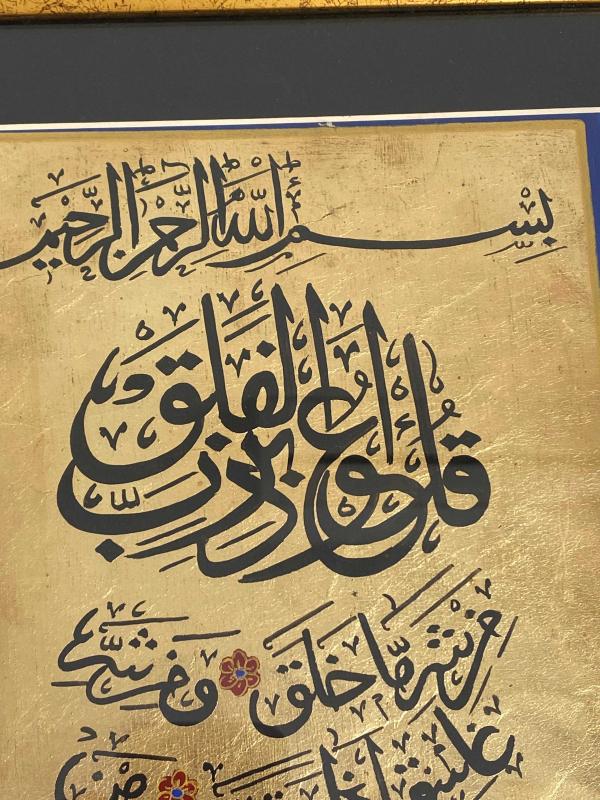 بِسْمِ اللَّهِ الرَّحْمَٰنِ الرَّحِيمِ
قُلْ أَعُوذُ بِرَبِّ الْفَلَقِ
مِن شَرِّ مَا خَلَقَ وَمِن شَرِّ
غَاسِقٍ إِذَا